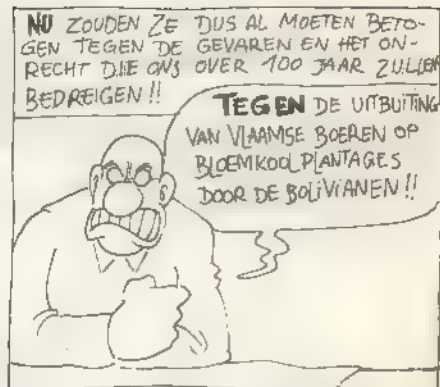 NU ZOUDEN ZE DUS AL MOETEN BETO-
GEN TEGEN DE GEVAREN EN HET ON-
RECHT DIE ONS OVER 100 JAAR ZULLEN
BEDREIGEN!!
TEGEN DE UITBUITING
VAN VLAAMSE BOEREN OP
BLOEMKOOLPLANTAGES
DOOR DE BOLIVIANEN!!